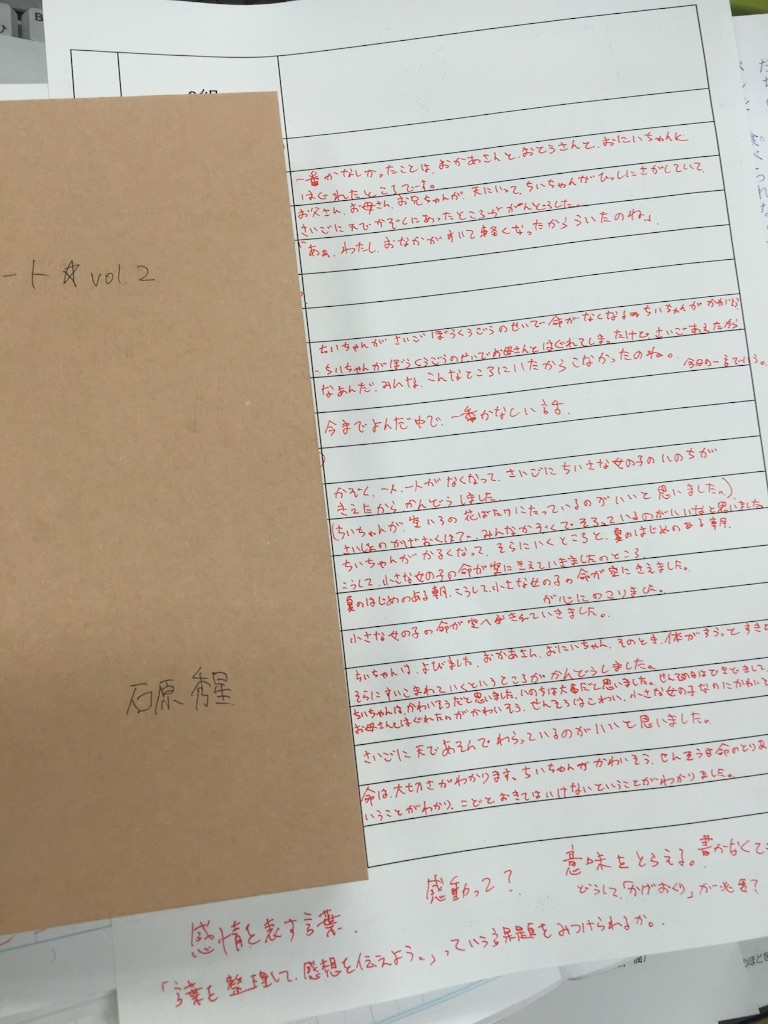 ート☆vol.2
石原 秀星
一番かなしかったことは、おかあさんと、おとうさんと、おにいちゃんと
はぐれたところです。
お父さん、お母さん、お兄ちゃんが、天にいって、ちいちゃんがひっしにさがしていて、
さいごに天でかぞくにあったところがかんどうした。
「あぁ、わたし、おなかがすいて軽くなったからういたのね」
ちいちゃんがさいごぼうくうごうのせいで命がなくなる
ちいちゃんがぼうくうごうのせいでお母さんとはぐれてしまったけど、さいごあえたから
なあんだ、みんな、こんなところにいたからこなかったのね。
今までよんだ中で、一番かなしい話
かぞく、一人、一人がなくなって、さいごにちいさな女の子のいのちが
きえたからかんどうしました
(ちいちゃんが、空いろの花ばたけにたっているのがいいと思いました。)
みんなかぞくでそろっているのがいいなと思いました
ちいちゃんがかるくなって、そらにいくところと、夏のはじめのある朝、
こうして、小さな女の子の命が空にきえていきましたのところ
夏のはじめのある朝、こうして、小さな女の子の命が空にきえました。
が心にのこりました。
小さな女の子の命が空へきえていきました。
ちいちゃんは、よびました。おかあさん、おにいちゃん、そのとき、体がすうっとすきと
そらにすいこまれていくというところがかんどうしました。
ちいちゃんは、かわいそうだと思いました。いのちは大事だと思いました。
お母さんとはぐれたのがかわいそう、せんそうはこわい、小さな女の子なのにかわい
さいごに天であそんでわらっているのがいいと思いました。
命は、大切さがわかります。ちいちゃんがかわいそう、せんそうは命のとりあ
いうことがわかり、にどとおきてはいけないということがわかりました。
感動って?
意味をとらえる。書かなくて
どうして「かげおくり」が
感情を表す言葉
「言葉を整理して、感想を伝えよう。」っていう課題をみつけられるか。